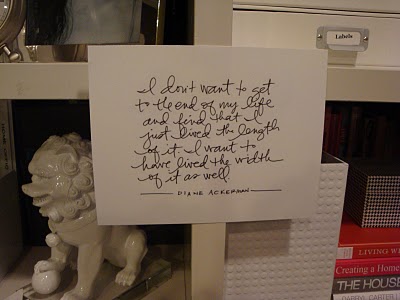 Labels
I don't want to get
to the end of my life
and find that I
just lived the length
of it. I want to
have lived the width
of it as well.
DIANE ACKERMAN
LIVING W
Creating a Home
THE HOUS
DARRYL CARTER